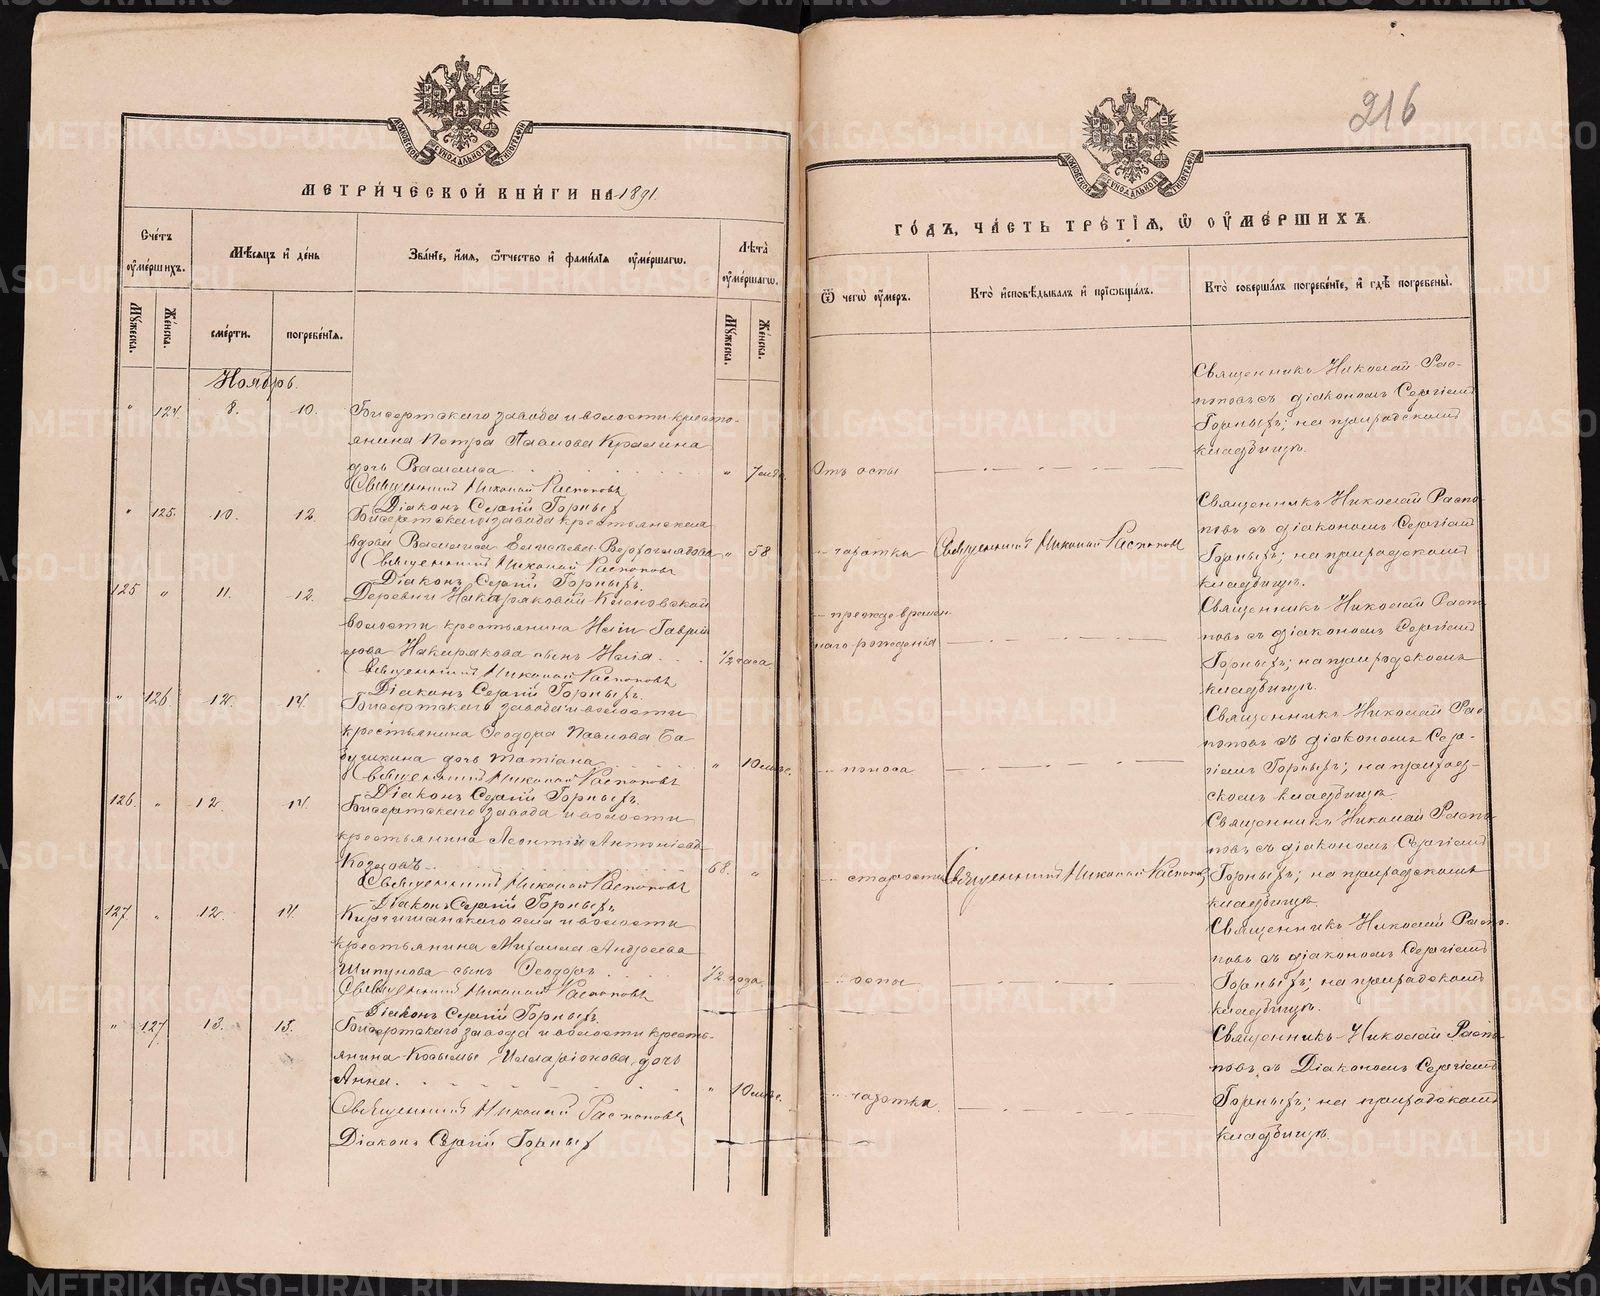 216
МЕТРИ́ЧЕСКОЙ КНИ́ГИ НА 1891
ГО́ДЪ, ЧА́СТЬ ТРЕ́ТІѦ, Ѡ҆ ОУ҆МЕ́РШИХЪ
Сче́тъ оу҆ме́ршихъ.
Мѣ́сѧцъ и҆ де́нь
Зва́нїе, и҆́мѧ, ѻ҆́тчество и҆ фами́лїѧ оу҆ме́ршагѡ.
Лѣ́та оу҆ме́ршагѡ.
Ѿ чегѡ̀ оу҆́меръ.
Кто̀ и҆сповѣ́дывалъ и҆ прїѡбща́лъ.
Кто̀ соверша́лъ погребе́нїе, и҆ гдѣ̀ погребены̀.
Му́жеска.
Же́нска.
сме́рти.
погребе́нїѧ.
Му́жеска.
Же́нска.
Ноябрь.
" 124. 8. 10.
Бисертскаго завода и волости кресть-
янина Петра Павлова Кралина
дочь Василиса " 7
Священникъ Николай Распоповъ
Діаконъ Сергій Горныхъ
Отъ оспы
Священникъ Николай Рас-
поповъ съ діакономъ Сергіемъ
Горныхъ; на приходскомъ
кладбищѣ.
" 125. 10. 12.
Бисертскаго завода крестьянская
вдова Василиса " 58
Священникъ Николай Распоповъ
Діаконъ Сергій Горныхъ.
чахотки
Священникъ Николай Распоповъ
Священникъ Николай Распо-
повъ съ діакономъ Сергіемъ
Горныхъ; на приходскомъ
кладбищѣ.
125 " 11. 12.
Деревни Накаряковой Кленовской
волости крестьянина Иліи Гаврі-
лова Накарякова сынъ Илія 1/2 часа
Священникъ Николай Распоповъ
Діаконъ Сергій Горныхъ.
преждевремен
наго рожденія
Священникъ Николай Распо
повъ съ діакономъ Сергіемъ
Горныхъ; на приходскомъ
кладбищѣ.
" 126. 12. 14.
Бисертскаго завода и волости
крестьянина Ѳеодора Павлова Ба
бушкина дочь Татіана " 10
Священникъ Николай Распоповъ
Діаконъ Сергій Горныхъ.
поноса
Священникъ Николай Рас
поповъ съ діакономъ Сер-
гіемъ Горныхъ; на приход-
скомъ кладбищѣ.
126. " 12. 14.
Бисертскаго завода и волости
крестьянина Леонтій Антоніевъ
68. "
Священникъ Николай Распоповъ
Діаконъ Сергій Горныхъ
старости
Священникъ Николай Распоповъ
Священникъ Николай Распо
повъ съ діакономъ Сергіемъ
Горныхъ; на приходскомъ
кладбищѣ.
127. " 12. 14.
Киргишанскаго села и волости
крестьянина Михаила Андреева
Шипунова сынъ Ѳеодоръ 1/2 года
Священникъ Николай Распоповъ
Діаконъ Сергій Горныхъ.
оспы
Священникъ Николай Распо
повъ съ діакономъ Сергіемъ
Горныхъ; на приходскомъ
кладбищѣ.
" 127. 13. 15.
Бисертскаго завода и волости кресть-
янина Козьмы Илларіонова дочь
Анна. " 10
Священникъ Николай Распоповъ
Діаконъ Сергій Горныхъ
чахотки.
Священникъ Николай Распо
повъ съ Діакономъ Сергіемъ
Горныхъ; на приходскомъ
кладбищѣ.
METRIKI.GASO-URAL.RU